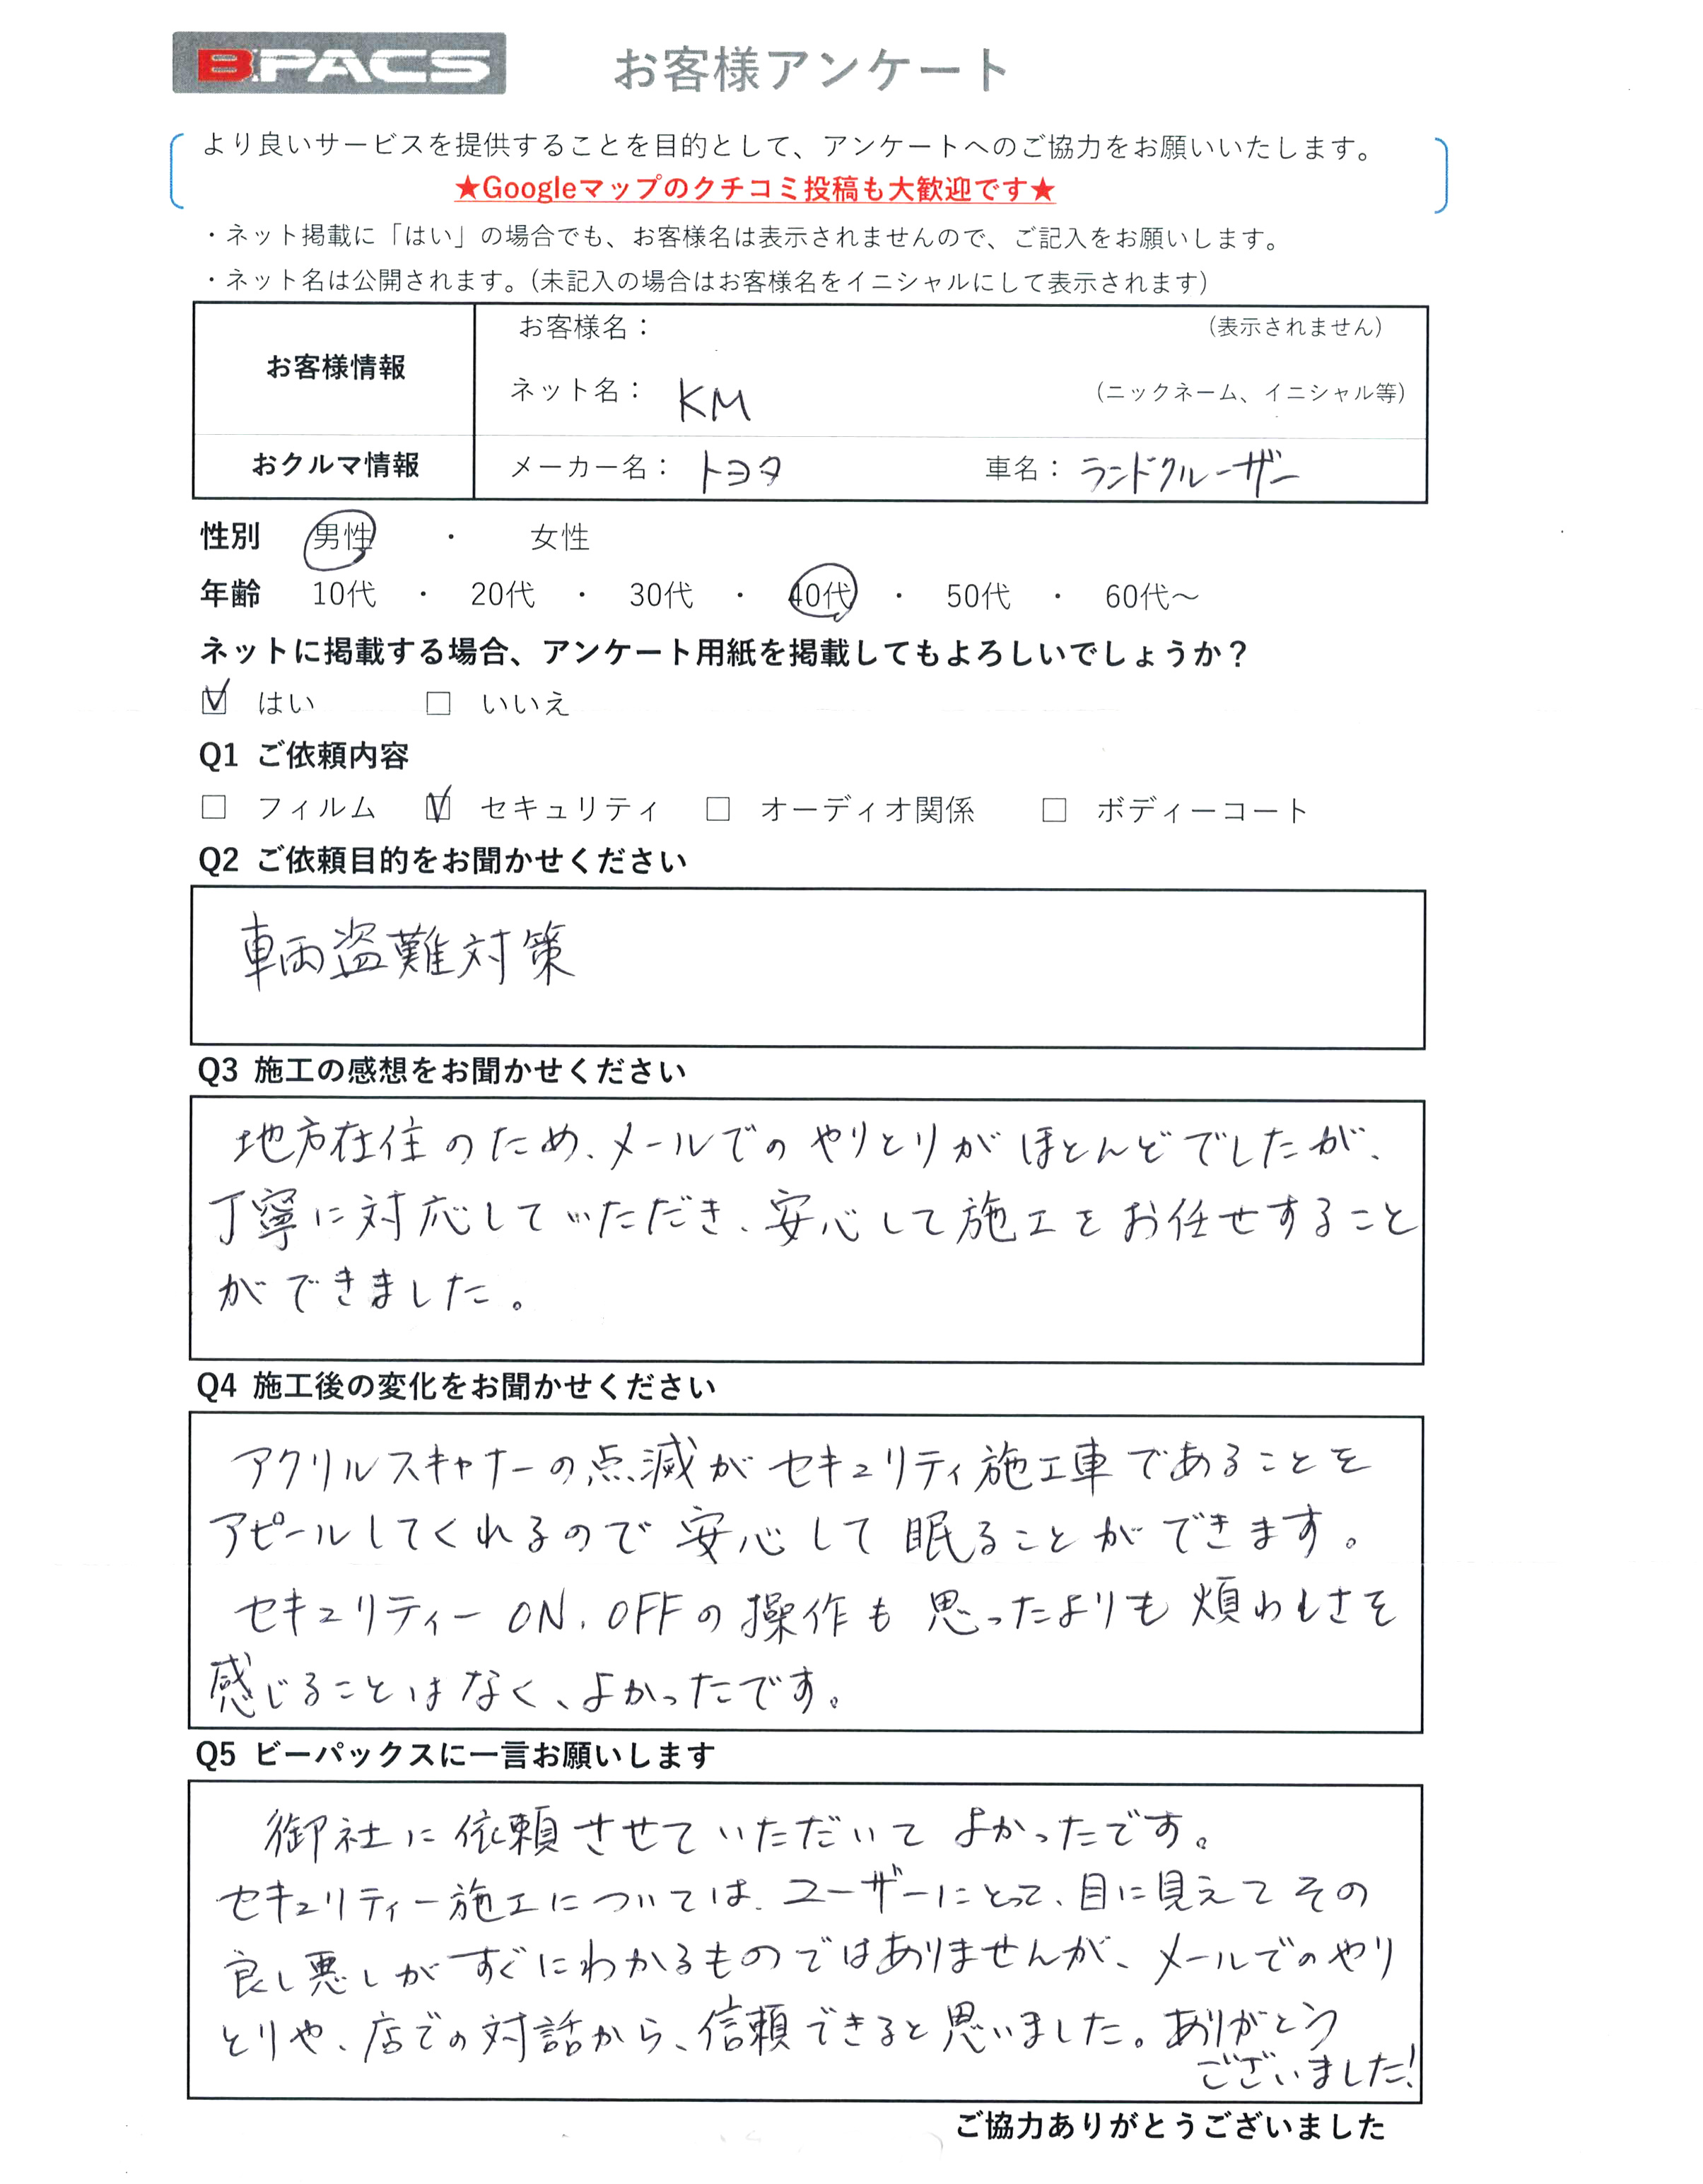 B-PACS お客様アンケート
より良いサービスを提供することを目的として、アンケートへのご協力をお願いいたします。
★Googleマップのクチコミ投稿も大歓迎です★
・ネット掲載に「はい」の場合でも、お客様名は表示されませんので、ご記入をお願いします。
・ネット名は公開されます。(未記入の場合はお客様名をイニシャルにして表示されます)
お客様情報
お客様名： (表示されません)
ネット名： KM (ニックネーム、イニシャル等)
おクルマ情報 メーカー名： トヨタ 車名： ランドクルーザー
性別 男性 ・ 女性
年齢 10代 ・ 20代 ・ 30代 ・ 40代 ・ 50代 ・ 60代～
ネットに掲載する場合、アンケート用紙を掲載してもよろしいでしょうか？
☑ はい □ いいえ
Q1 ご依頼内容
□ フィルム ☑ セキュリティ □ オーディオ関係 □ ボディーコート
Q2 ご依頼目的をお聞かせください
車両盗難対策
Q3 施工の感想をお聞かせください
地方在住のため、メールでのやりとりがほとんどでしたが、
丁寧に対応していただき、安心して施工をお任せすること
ができました。
Q4 施工後の変化をお聞かせください
アクリルスキャナーの点滅がセキュリティ施工車であることを
アピールしてくれるので安心して眠ることができます。
セキュリティー ON、OFFの操作も思ったよりも煩わしさを
感じることはなく、よかったです。
Q5 ビーパックスに一言お願いします
御社に依頼させていただいてよかったです。
セキュリティー施工については、ユーザーにとって、目に見えてその
良し悪しがすぐにわかるものではありませんが、メールでのやり
とりや、店での対話から、信頼できると思いました。ありがとう
ございました!
ご協力ありがとうございました